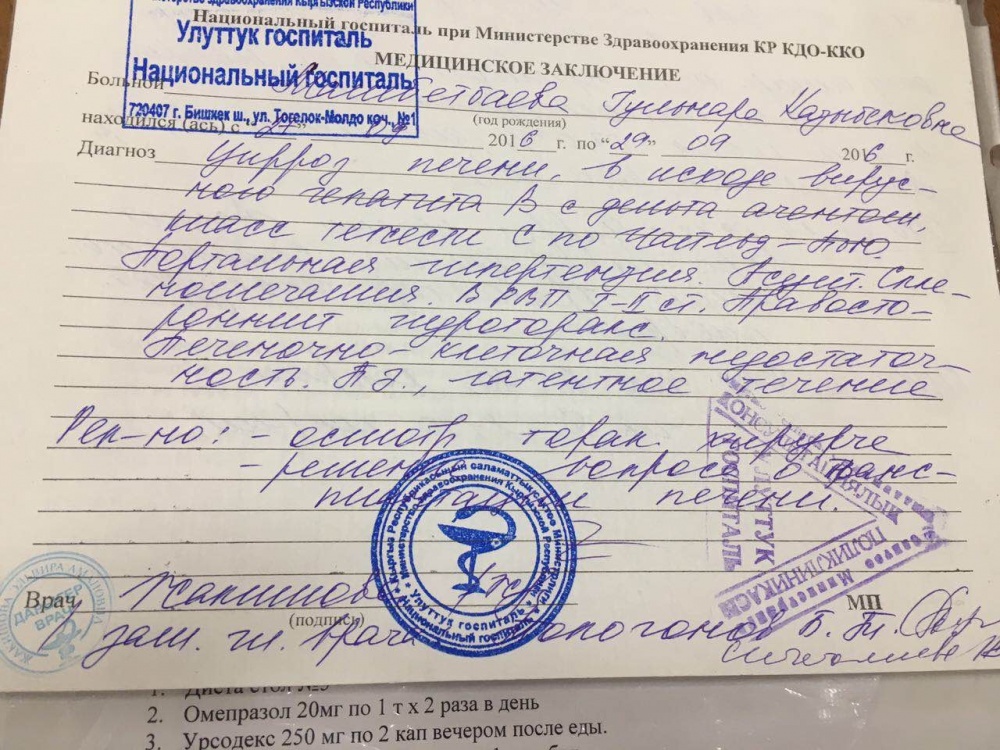 Министерство здравоохранения Кыргызской Республики
Улуттук госпиталь
Национальный госпиталь
720407 г. Бишкек ш., ул. Тоголок-Молдо коч., №1
Национальный госпиталь при Министерстве Здравоохранения КР КДО-ККО
МЕДИЦИНСКОЕ ЗАКЛЮЧЕНИЕ
Больной Гульнара
(год рождения)
находился (ась) с “27” 09 2016 г. по “29” 09 2016 г.
Диагноз Цирроз печени, в исходе вирус-
ного гепатита В с дельта агентом,
класс тяжести С по Чайльд-Пью.
Портальная гипертензия. Асцит. Спле-
номегалия. ВРВП I-II ст. Правосто-
ронний гидроторакс.
Печеночно-клеточная недостаточ-
ность. ПЭ., латентное течение
Рек-но: - осмотр торак. хирурга
- решение вопроса о транс-
плантации печени.
КОНСУЛЬТАЦИЯЛЫК
УЛУТТУК
ГОСПИТАЛЬ
ПОЛИКЛИНИКАСЫ
Кыргыз Республикасынын саламаттык сактоо Министрлиги
Министерство здравоохранения Кыргызской Республики
Улуттук госпиталь
Национальный госпиталь
ДАРЫГЕР
ВРАЧ
Врач
(подпись)
МП
зам. гл. врача Б. Т.
1. Диета стол №5
2. Омепразол 20мг по 1 т х 2 раза в день
3. Урсодекс 250 мг по 2 кап вечером после еды.